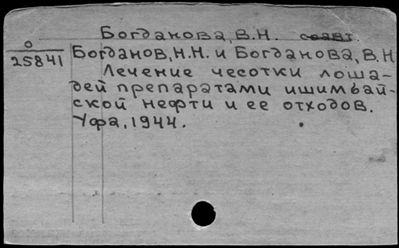 Богданова, В.Н. соавт.
О
25841
Богданов, Н.Н. и Богданова, В.Н
Лечение чесотки лоша-
дей препаратами ишимбай-
ской нефти и ее отходов.
Уфа, 1944.